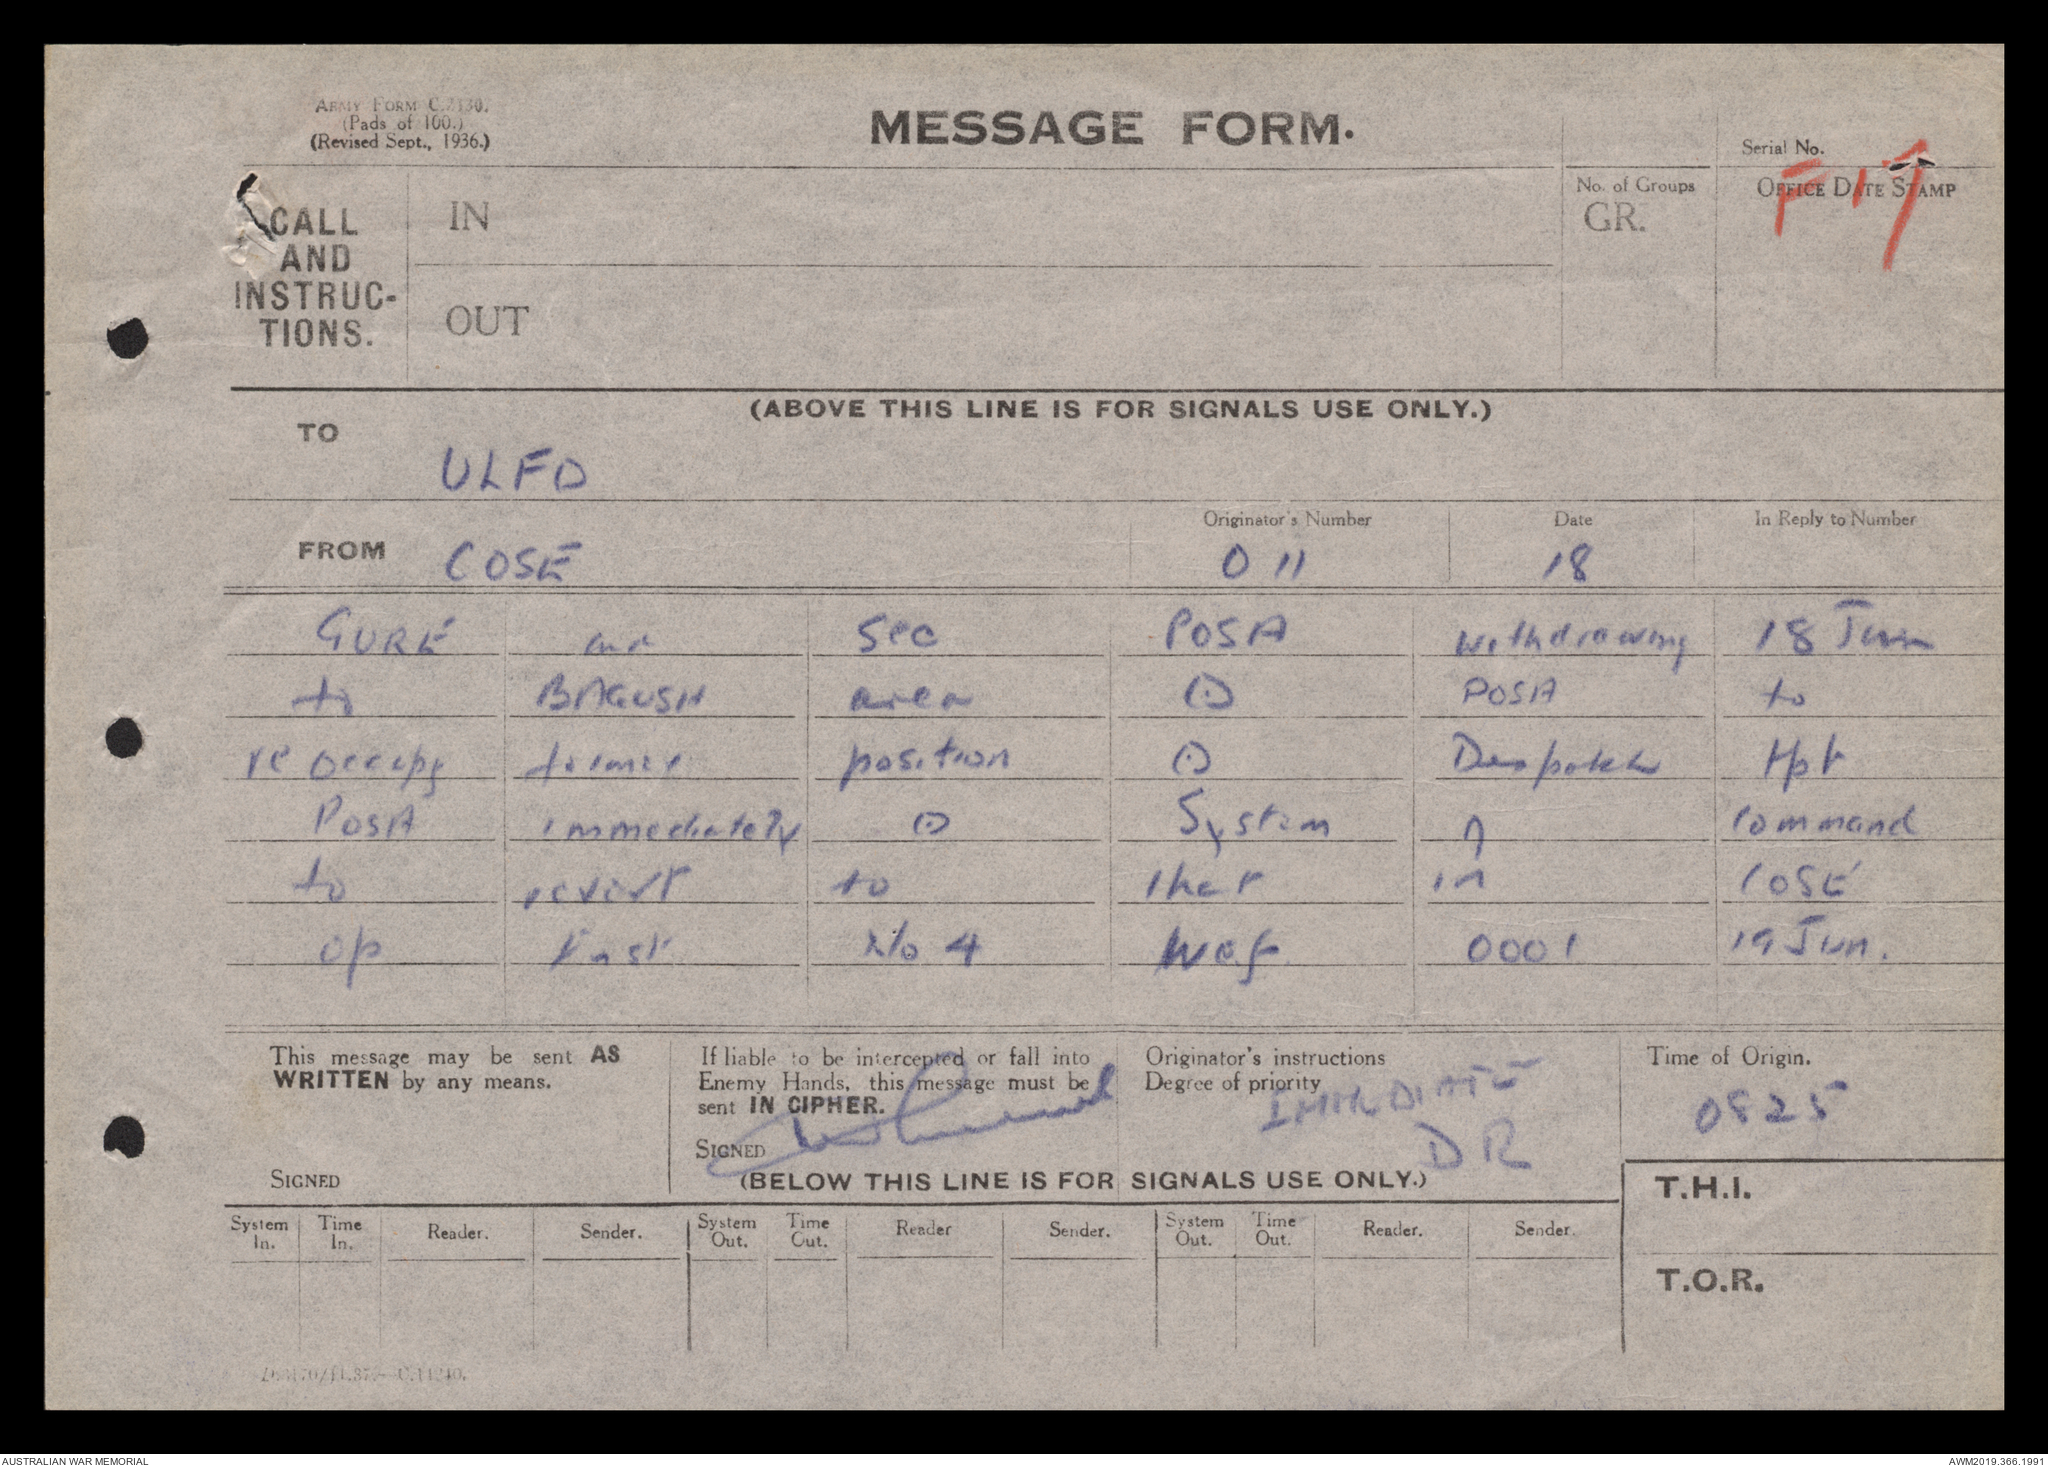 ARMY FORM C.2130.
(Pads of 100.)
(Revised Sept., 1936.)
MESSAGE FORM.
Serial No.
F 17
CALL
AND
INSTRUC-
TIONS.
IN
OUT
No. of Groups
GR.
OFFICE DATE STAMP
(ABOVE THIS LINE IS FOR SIGNALS USE ONLY.)
TO ULFD
Originator's Number Date In Reply to Number
FROM COSE O 11 18
GURE sec POSA withdrawing 18 Jun
to BAGUSH area ⊙ POSA to
re occupy former position ⊙ Despatch tpt
POSA immediately ⊙ System command
to revert to that in COSE
op inst No 4 wef 0001 19 Jun.
This message may be sent AS
WRITTEN by any means.
SIGNED
If liable to be intercepted or fall into
Enemy Hands, this message must be
sent IN CIPHER.
SIGNED
Originator's instructions
Degree of priority
IMMEDIATE
DR
Time of Origin.
0825
(BELOW THIS LINE IS FOR SIGNALS USE ONLY.)
T.H.I.
T.O.R.
System In. Time In. Reader. Sender. System Out. Time Out. Reader Sender. System Out. Time Out. Reader. Sender.
AUSTRALIAN WAR MEMORIAL
AWM2019.366.1991